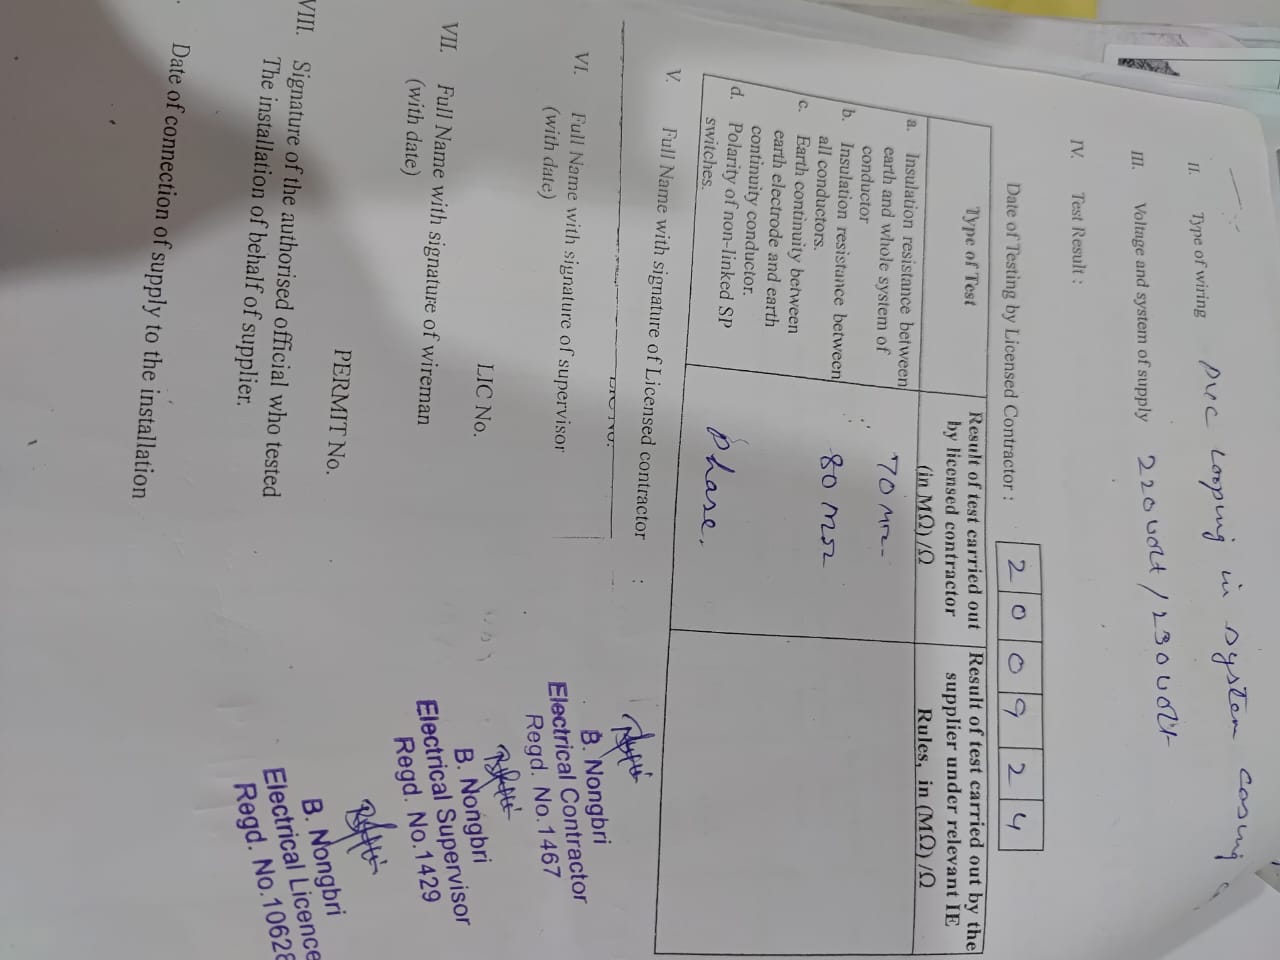 II. Type of wiring PVC Looping in System casing
III. Voltage and system of supply 220volt / 230volt
IV. Test Result :
Date of Testing by Licensed Contractor : 2 0 0 9 2 4
Type of Test
Result of test carried out by licensed contractor (in MΩ) /Ω
Result of test carried out by the supplier under relevant IE Rules, in (MΩ) /Ω
a. Insulation resistance between
earth and whole system of
conductor
70 MΩ
b. Insulation resistance between
all conductors.
80 MΩ
c. Earth continuity between
earth electrode and earth
continuity conductor.
d. Polarity of non-linked SP
switches.
Phase.
V. Full Name with signature of Licensed contractor :
LIC No.
B. Nongbri
Electrical Contractor
Regd. No.1467
VI. Full Name with signature of supervisor
(with date)
LIC No.
B. Nongbri
Electrical Supervisor
Regd. No.1429
VII. Full Name with signature of wireman
(with date)
PERMIT No.
B. Nongbri
Electrical Licence
Regd. No.10628
VIII. Signature of the authorised official who tested
The installation of behalf of supplier.
Date of connection of supply to the installation